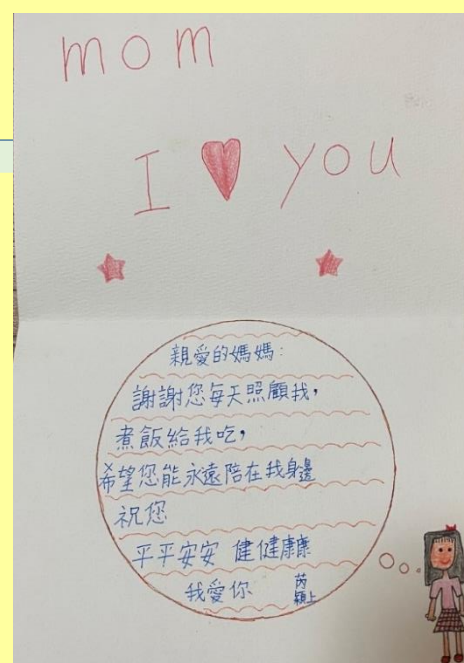 mom
I ♥ you
親愛的媽媽：
謝謝您每天照顧我，
煮飯給我吃，
希望您能永遠陪在我身邊
祝您
平平安安 健健康康
我愛你 芮穎上